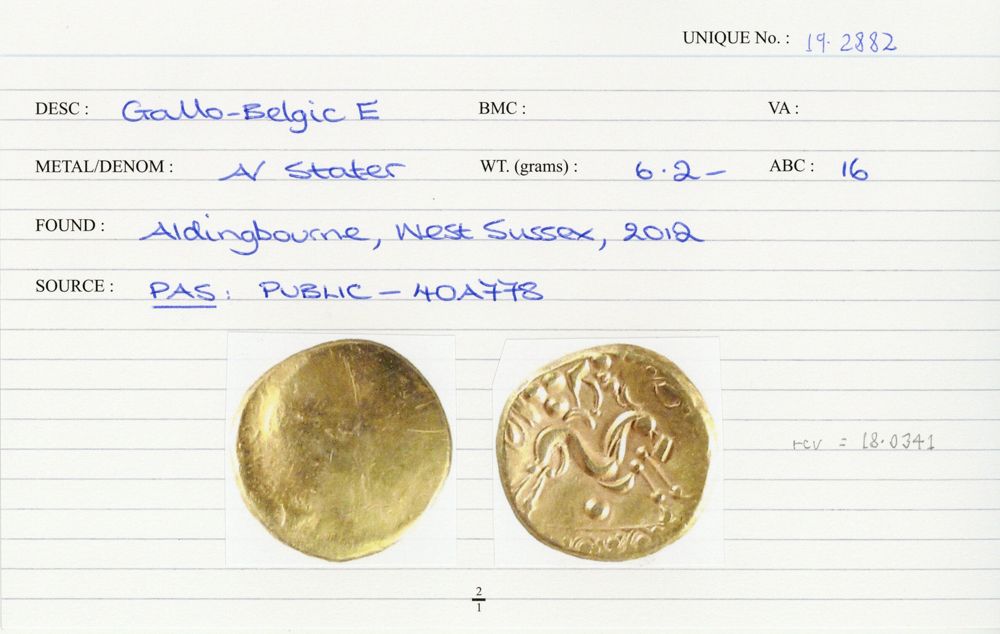 UNIQUE No. : 19.2882
DESC : Gallo-Belgic E BMC : VA :
METAL/DENOM : AV Stater WT. (grams) : 6.2- ABC : 16
FOUND : Aldingbourne, West Sussex, 2012
SOURCE : PAS: PUBLIC - 40A778
rev = 18.0341
2
1